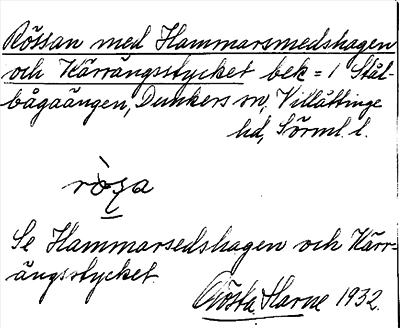 Rössan med Hammarsmedshagen
och Kärrängsstycket bek = 1 Stål-
bågaängen, Dunkers sn, Villåttinge
hd, Sörml. l.
ròsa
Se Hammarsedshagen och Kärr-
ängsstycket
Gösta Harne 1932.